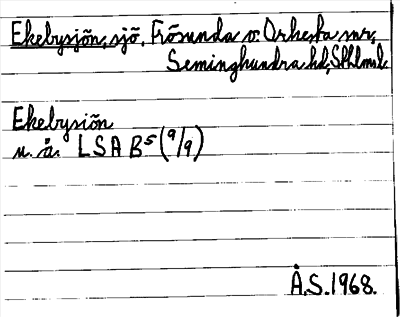 Ekebysjön, sjö, Frösunda o. Orkesta snr,
Seminghundra hd, Sthlms l.
Ekebysiön
u. å. LSA B5 (9/9)
Å.S. 1968.